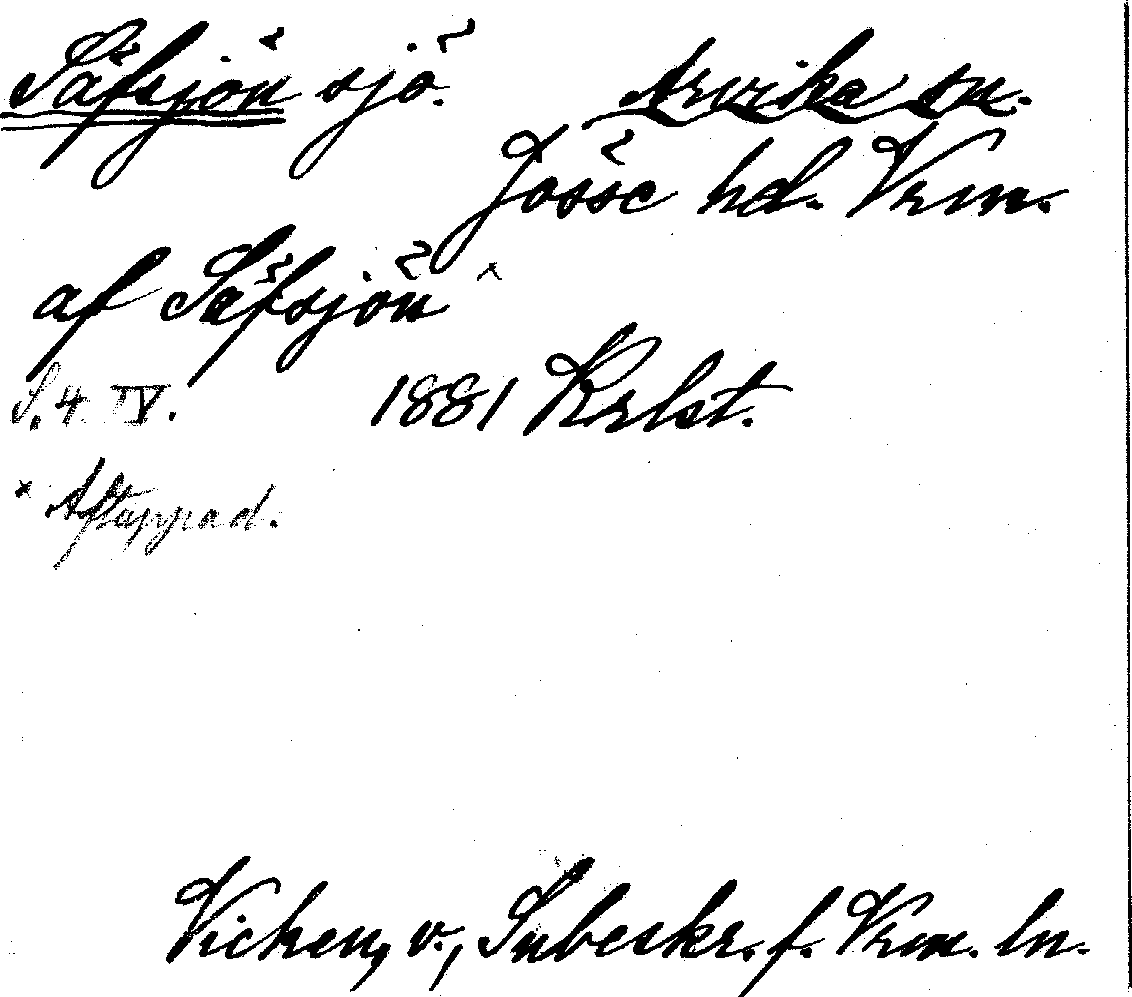 Säfsjön sjö. Arvika sn.
Jösse hd. Vrm.
af Säfsjön ×
S. 4. IV. 1881 Krlst.
× Aftappad.
Vicken, v., Snbeskr. f. Vrm. ln.